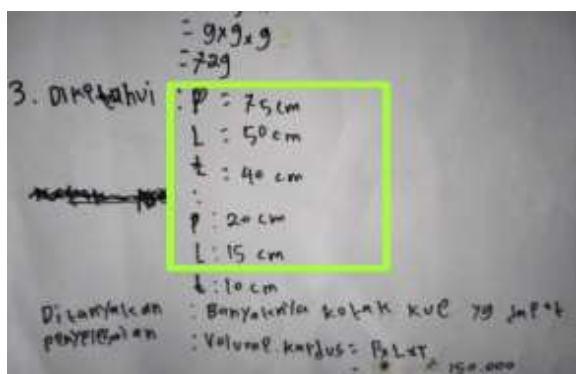 = 9x9x9
= 729
3. Diketahui : P = 75 cm
L : 50 cm
t : 40 cm
:
p : 20 cm
L : 15 cm
t : 10 cm
Ditanyakan : Banyaknya kotak kue yg dapat
penyelesaian : Volume kardus = PxLxT
= 150.000